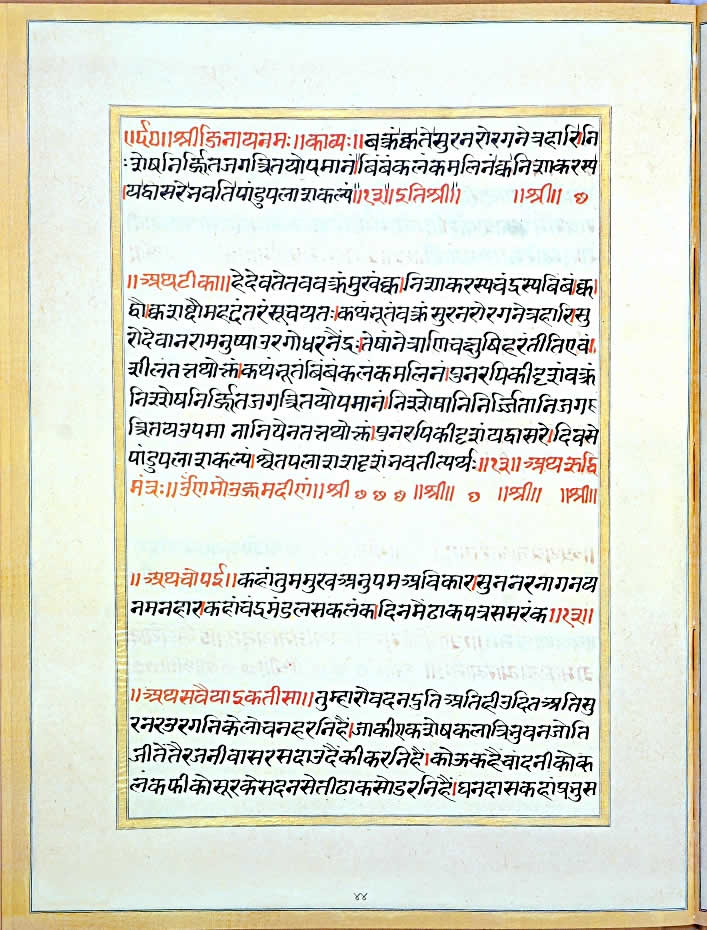 ॥र्द०॥श्रीजिनायनमः॥काव्यः॥वक्रंक्कतेसुरनरोरगनेत्रहारि।नि
ःशेषनिर्जितजगत्रितयोपमानं।बिंबंकलंकमलिनंक्कनिशाकरस्य
।यद्वासरेनवतिपांडुपलाशकल्पं॥१३॥इतिश्री॥ ॥श्री॥ ७
॥अथटीका॥हेदेवतेतववक्रंमुखंक्क।निशाकरस्यचंद्रस्यबिंबंक्क।
द्वौकशब्दौमहदंतरंसूचयतः।कथंनूतंवक्रंसुरनरोरगनेत्रहारि।सु
रोदेवानरामनुष्याउरगोधरनेंद्रः।तेषांनेत्राणिचक्षुषिहरंतीतिएवं।
शीलंतत्तथोक्तं।कथंनूतंबिंबंकलंकमलिनं।पुनरपिकीदृशंवक्रं
निःशेषनिर्जितजगत्रितयोपमानं।निःशेषानिनिर्जितानिजगत्
त्रितयउपमा नानियेनतत्तथोक्तं।पुनरपिकीदृशंयद्वासरे।दिवसे
पांडुपलाशकल्पं।श्वेतपलाशशदृशंनवतीत्यर्थः॥१३॥अथऋद्धि
मंत्रः॥उँणमोउजुमदीणं॥श्री ७ ७ ७ ॥श्री॥ ७ ॥श्री॥ ॥श्री॥
॥अथचोपई॥कहांतुममुखअनुपमअविकार।सुननरनागनय
नमनहार।कहांचंद्रमंडलसकलंक।दिनमैढाकपत्रसमरंक॥१३॥
॥अथसवैयाइकतीसा॥तुम्हारोवदनदुतिअतिहीउदितअतिसु
रनरउरगनिकेलोचनहरनिहैं।जाकीएकशेषकलात्रिनुवनजोति
जीतेंतैरजनीवासरसदाउदैकीकरनिहैं।कोऊकहैचांदनीकोक
लंकफीकोसूरकेसदनसेतीढाकसोडरनिहैं।घनदासकहांषनुम
४४